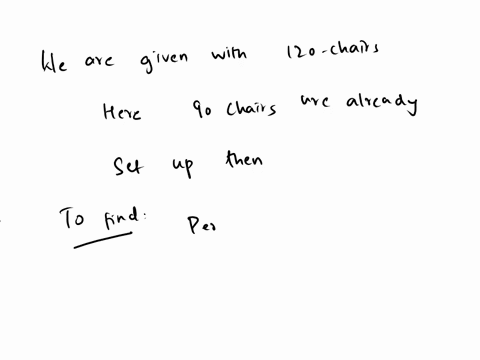 We are given with 120-chairs
Here 90 chairs are already
Set up then
To find: Per